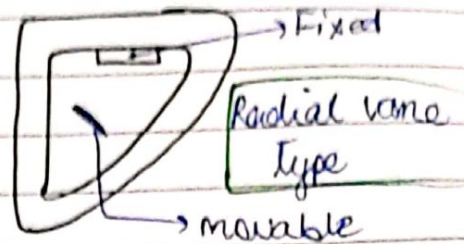 Fixed
Radial vane
Type
movable